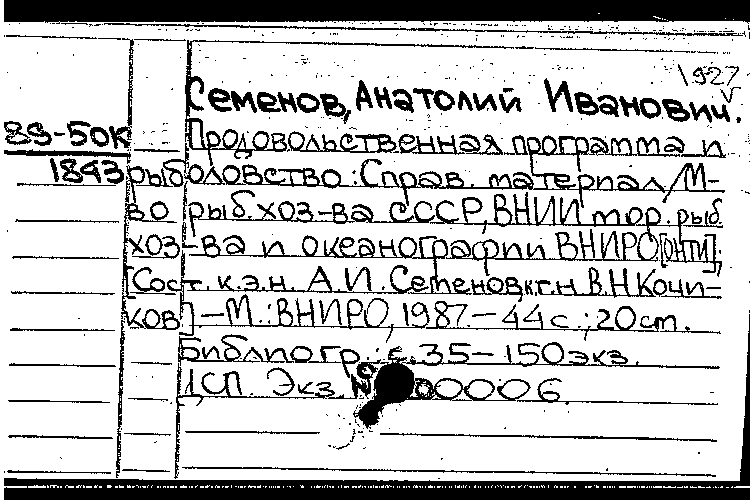 1927
Семенов, Анатолий Иванович.
89-50К Продовольственная программа и
1843 рыболовство: Справ. материал/М-
во рыб. хоз-ва СССР, ВНИИ мор. рыб.
хоз-ва и океанографии ВНИРО[ОНТИ];
[Сост. к.э.н. А.И. Семенов, к.г.н В.Н Кочи-
ков] -М.: ВНИРО, 1987.- 44 с.; 20 см.
Библиогр.: с. 35 - 150 экз.
ДСП. Экз. № 00006.